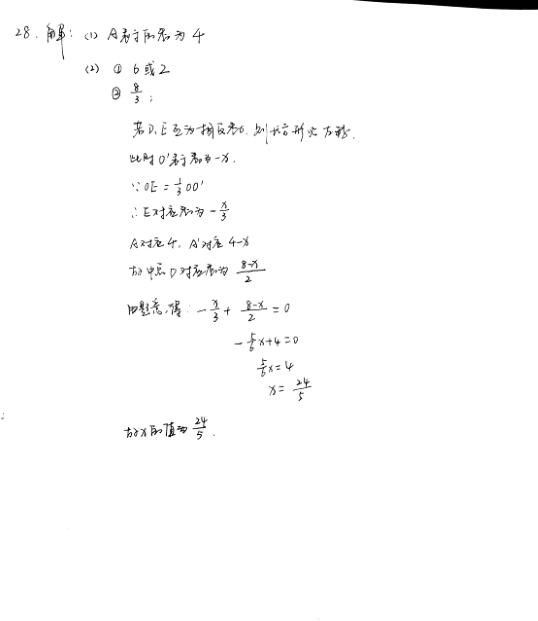 28. 解: (1) A表示的数为 4
(2) ① 6或2
② 8/3;
若D、E互为相反数, 则长方形
此时 O'表示数为 -x.
∵ OE = 1/3 OO'
∴ E对应数为 - x/3
A对应 4, A'对应 4-x
故中点 D 对应数为 (8-x)/2
由题意, 得: - x/3 + (8-x)/2 = 0
- 5/6 x + 4 = 0
5/6 x = 4
x = 24/5
故x的值为 24/5.